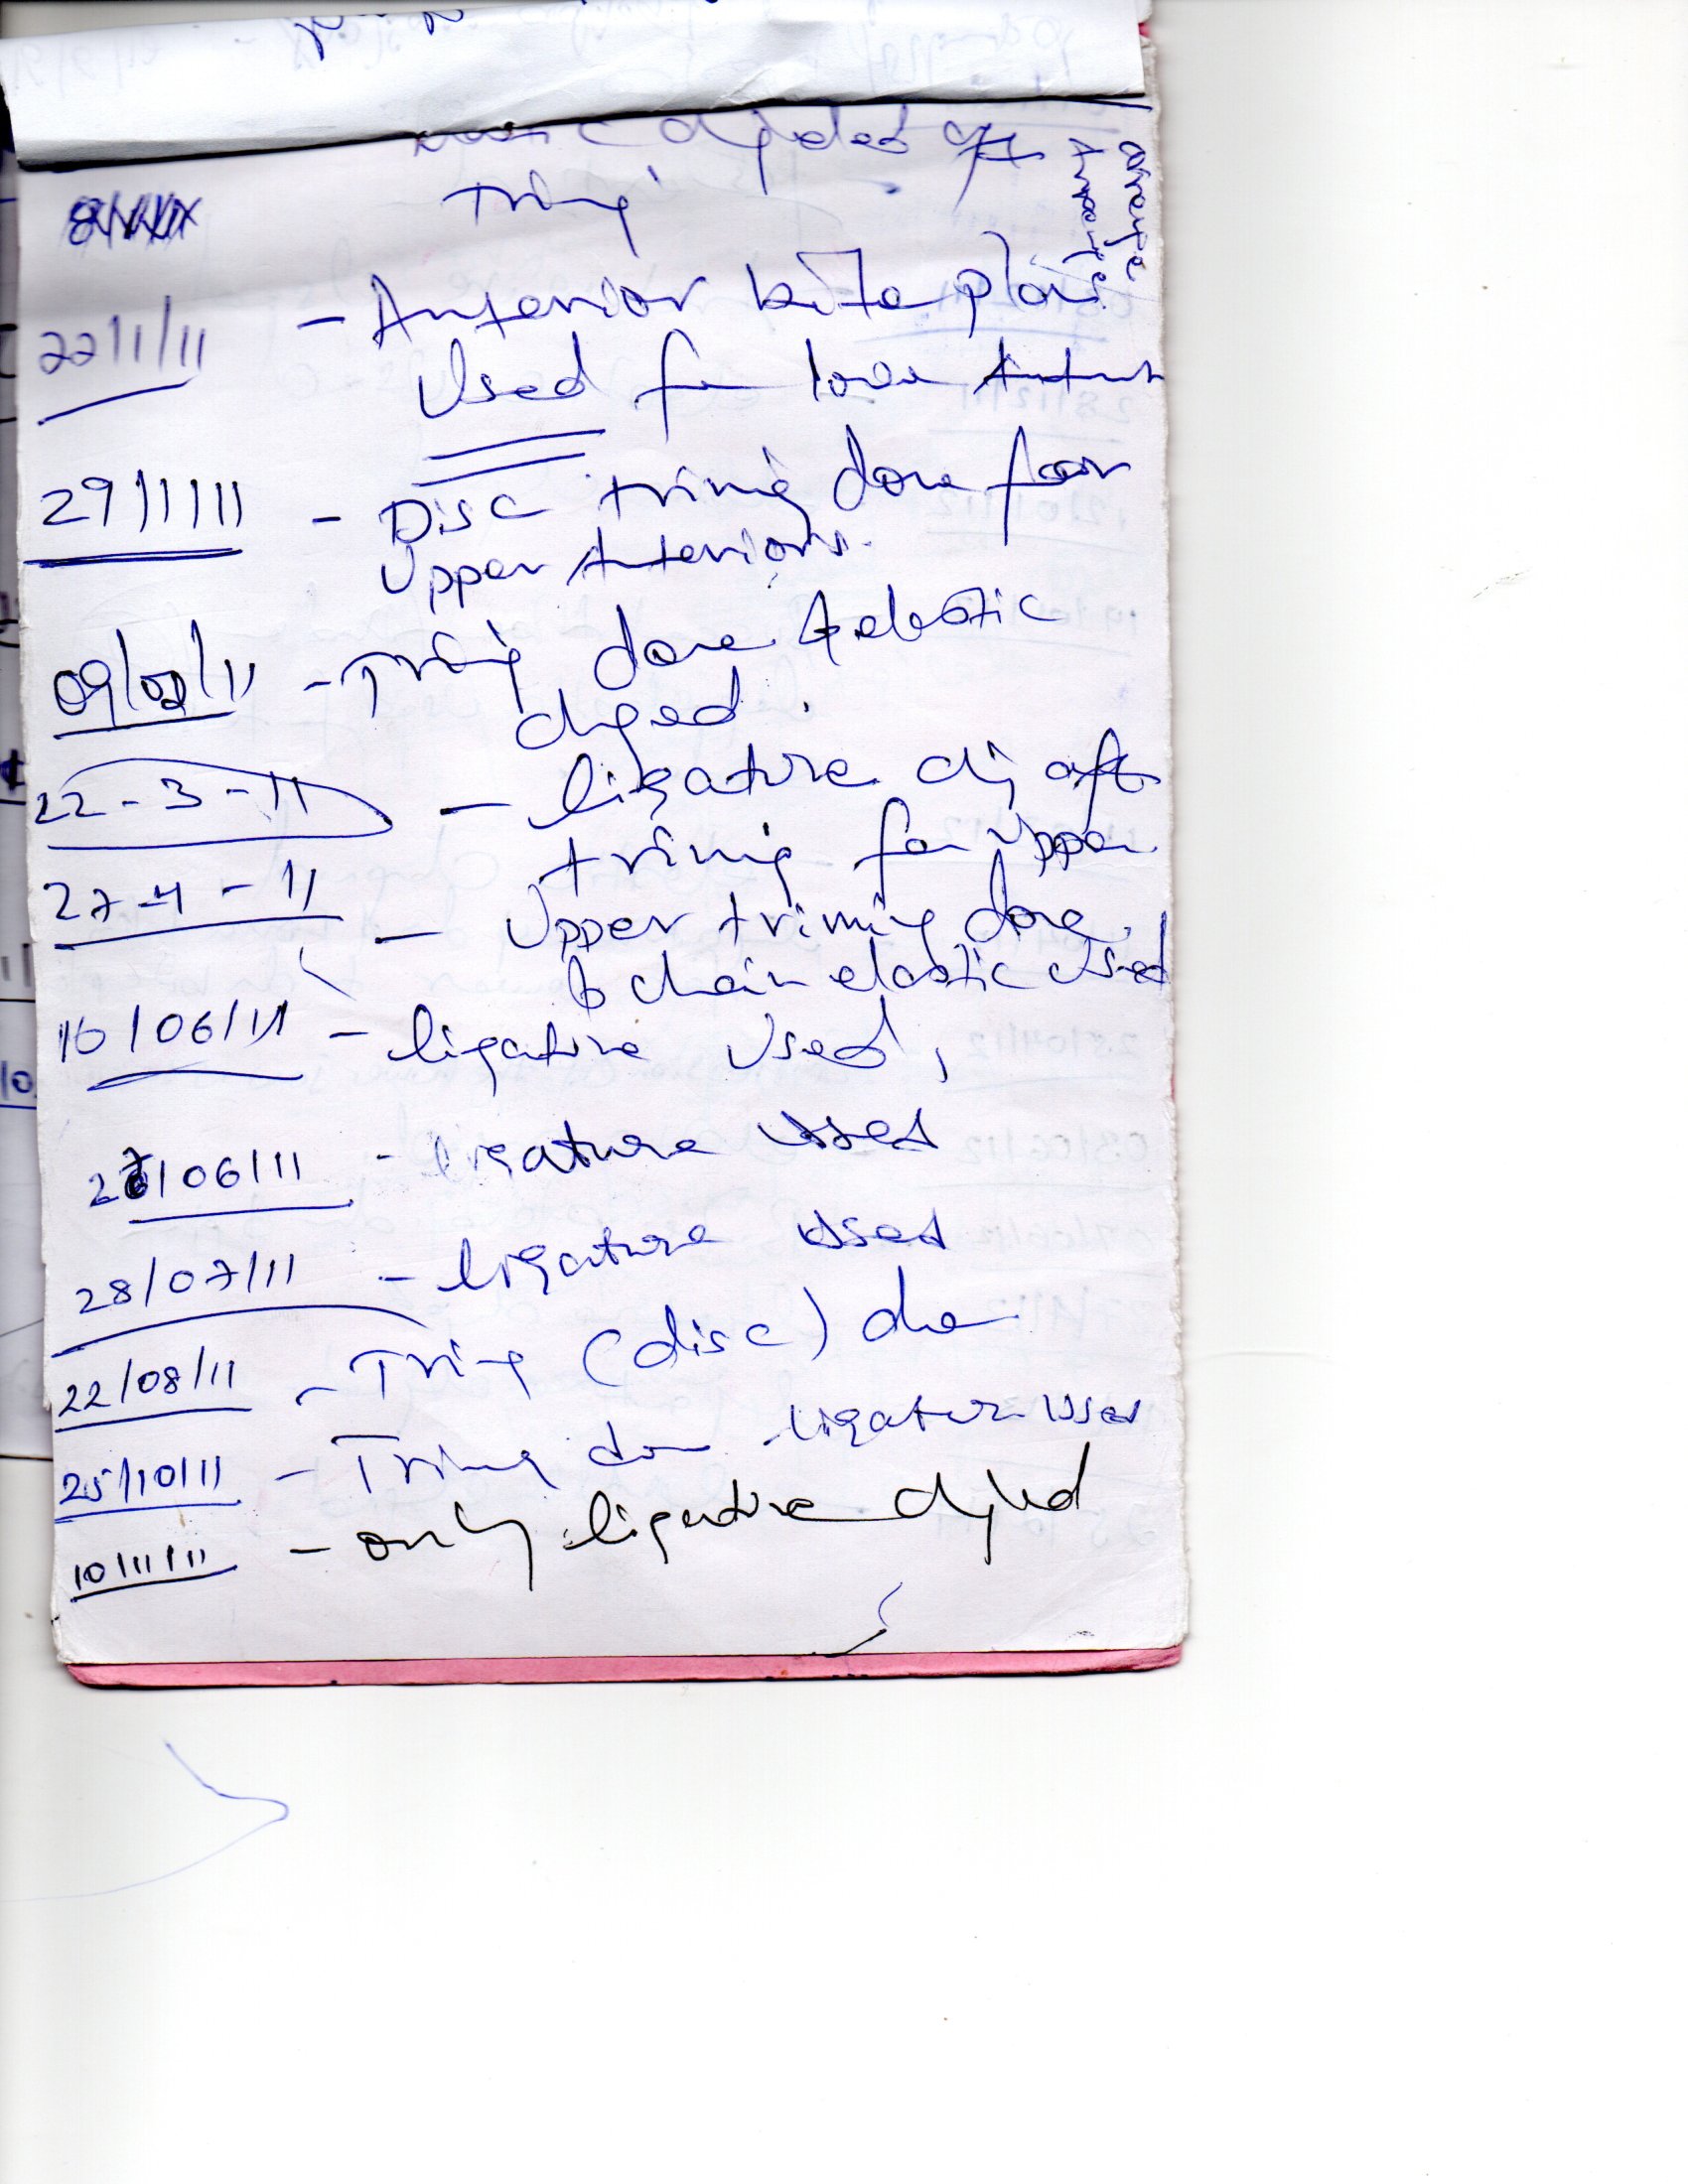 Triming
22/1/11 - Anterior bite plane
Used for lower
29/1/11 - Disc triming done for
Upper Anteriors.
09/02/11 - Triming done & elastic
chged.
22-3-11 - ligature chg after
triming for Upper
27-4-11 - Upper triming done
& chain elastic used
10/06/11 - ligature Used,
/06/11 - ligature used
28/07/11 - ligature used
22/08/11 - Triming (disc) done
25/10/11 - Triming done ligature used
10/11/11 - only ligature chged